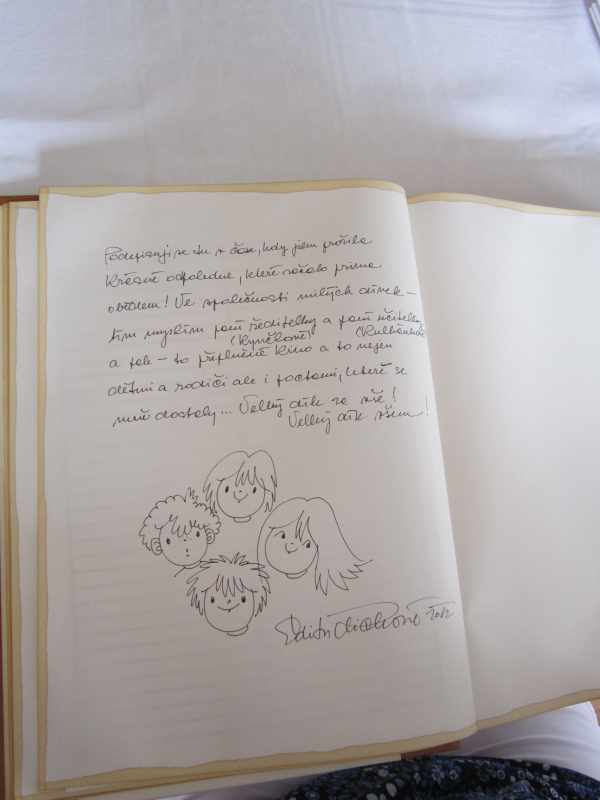 Podepisuji se tu v čase, kdy jsem prožila
krásné odpoledne, které začalo prima
obědem! Ve společnosti milých dámek –
tím myslím paní ředitelky a paní učitelky
(Kynčlové)
a pak – to přeplněné kino a to nejen
dětmi a rodiči ale i poctami, které se
mně dostaly... Velký dík za vše!
Velký dík všem!
2012